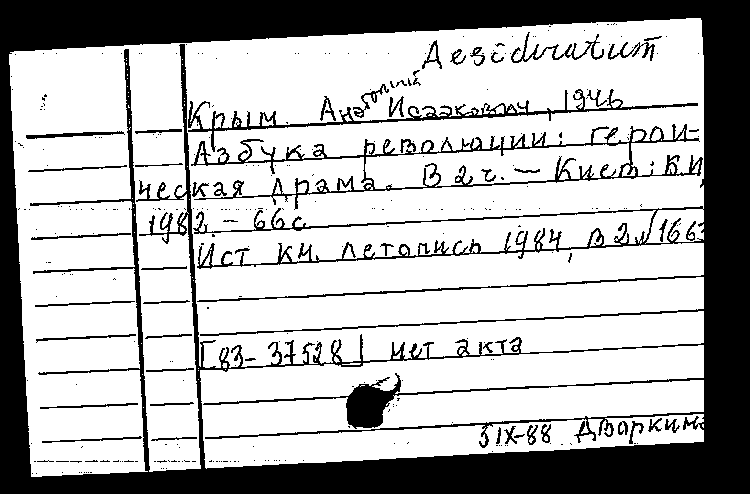 Desideratum
Крым Анатолий Исаакович, 1946
Азбука революции: герои-
ческая драма. В 2 ч. - Киев: В.И,
1982. - 66 с
Ист. кн. летопись 1984, в 2 №1663
[83-37528] нет акта
5 IX-88 Дворкина